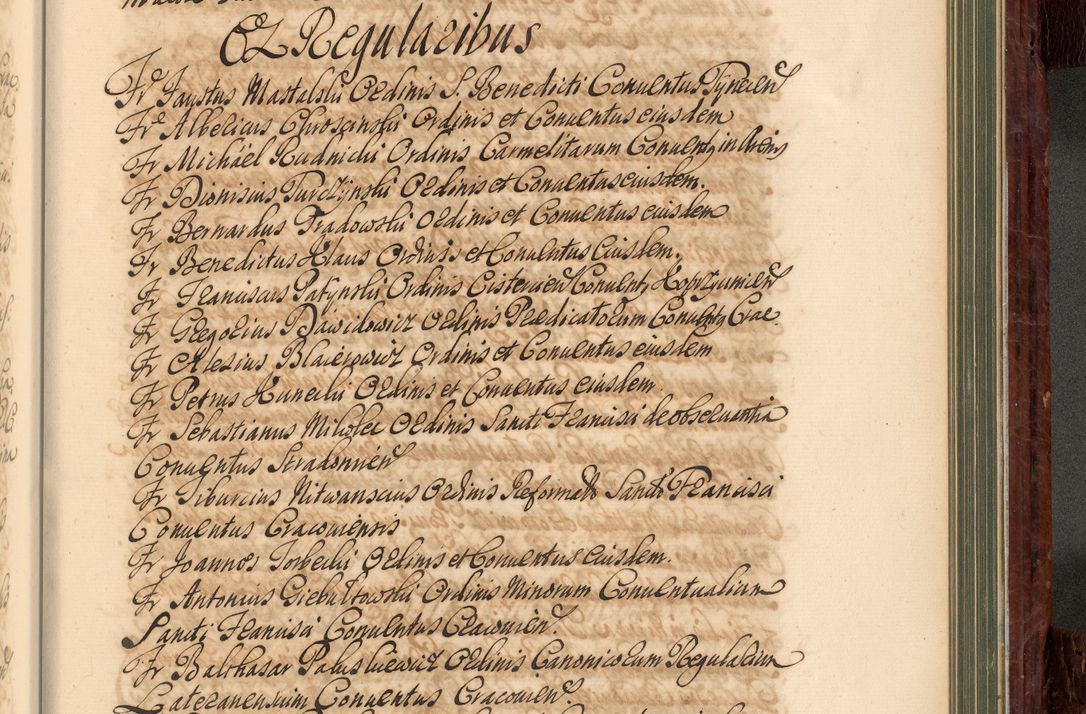 Ex Regularibus
Fr Faustus Mastalski Ordinis S. Benedicti Conventus Tynecien
Fr Albericus Chroscinski Ordinis et Conventus eiusdem
Fr Michäel Rudnicki Ordinis Carmelitarum Convent9 in Arenis
Fr Dionisius Turczynski Ordinis et Conventus eiusdem.
Fr Bernardus Fradowski Ordinis et Conventus eiusdem
Fr Benedictus Klaus Ordinis et Conventus Eiusdem.
Fr Franciscus Patynski Ordinis Cistercien Convent9 Koprzyvnicen
Fr Gregorius Dawidowicz Ordinis Prædicatorum Convent9 Crac.
Fr Alexius Blaierowicz Ordinis et Conventus eiusdem
Fr Petrus Kunecki Ordinis et Conventus eiusdem.
Fr Sebastianus Miloser Ordinis Sancti Francisci de observantia
Conventus Stradomien
Fr Tiburcius Nitwanscius Ordinis Reformat Sancti Francisci
Conventus Cracoviensis
Fr Joannes Torbecki Ordinis et Conventus Eiusdem.
Fr Antonius Giebultowski Ordinis Minorum Conventualium
Sancti Francisci Conventus Cracovien.
Fr Balthasar Paluskiewicz Ordinis Canonicorum Regularium
Lateranensium Conventus Cracovien.